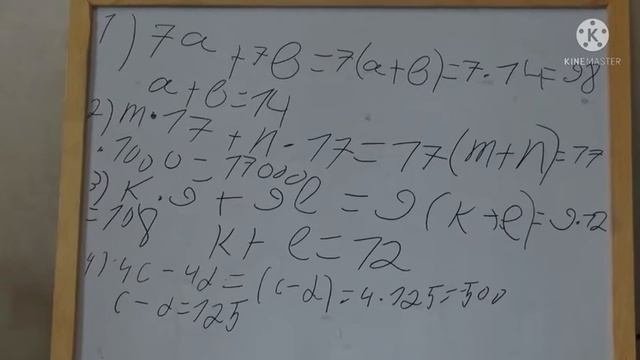 1) 7a + 7b = 7(a+b) = 7·14 = 98
a + b = 14
2) m·17 + n·17 = 17(m+n) = 17
·1000 = 17000
3) k·9 + 9l = 9(k+l) = 9·12
= 108
k + l = 12
4) 4c - 4d = (c-d) = 4·125 = 500
c - d = 125
K
KINEMASTER